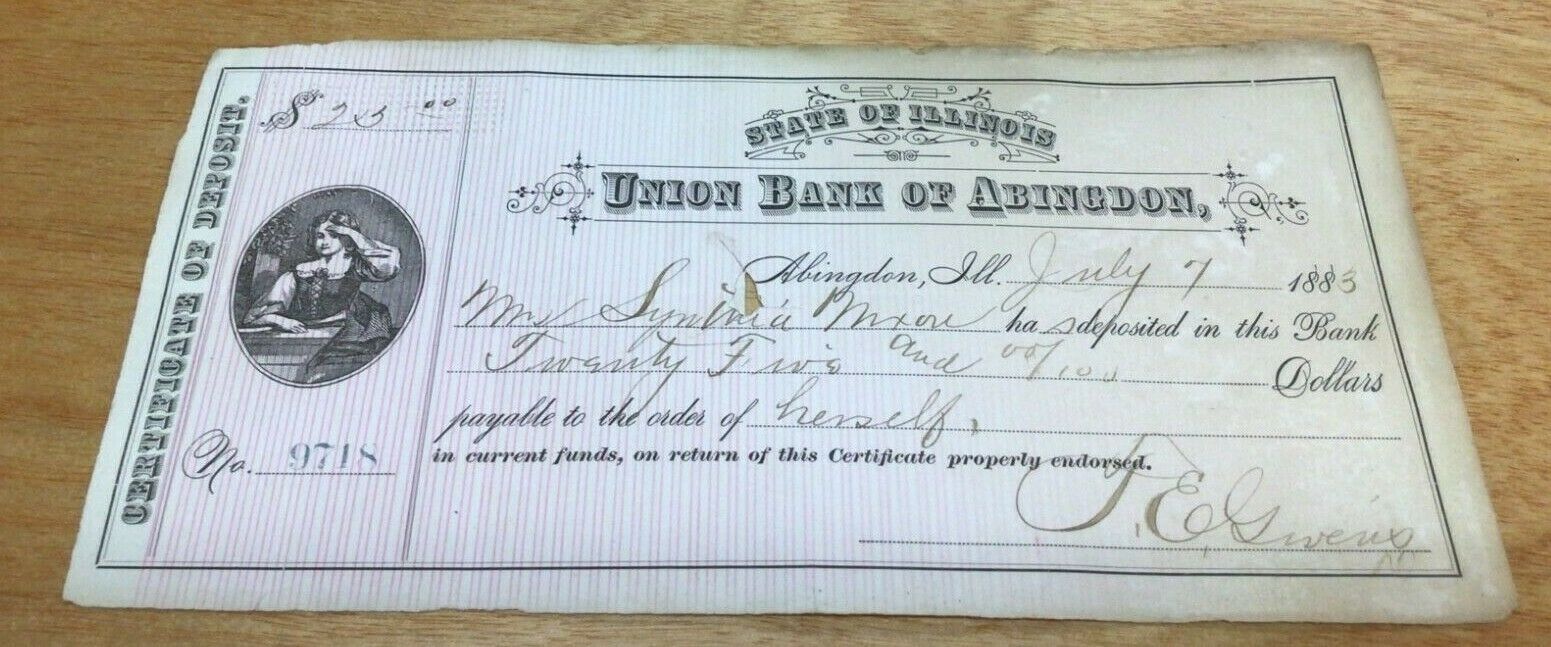 CERTIFICATE OF DEPOSIT.
$ 25 00
STATE OF ILLINOIS
UNION BANK OF ABINGDON,
Abingdon, Ill. July 7 1883
Synthia has deposited in this Bank
Twenty Five and 00/100 Dollars
payable to the order of herself,
No. 9718
in current funds, on return of this Certificate properly endorsed.